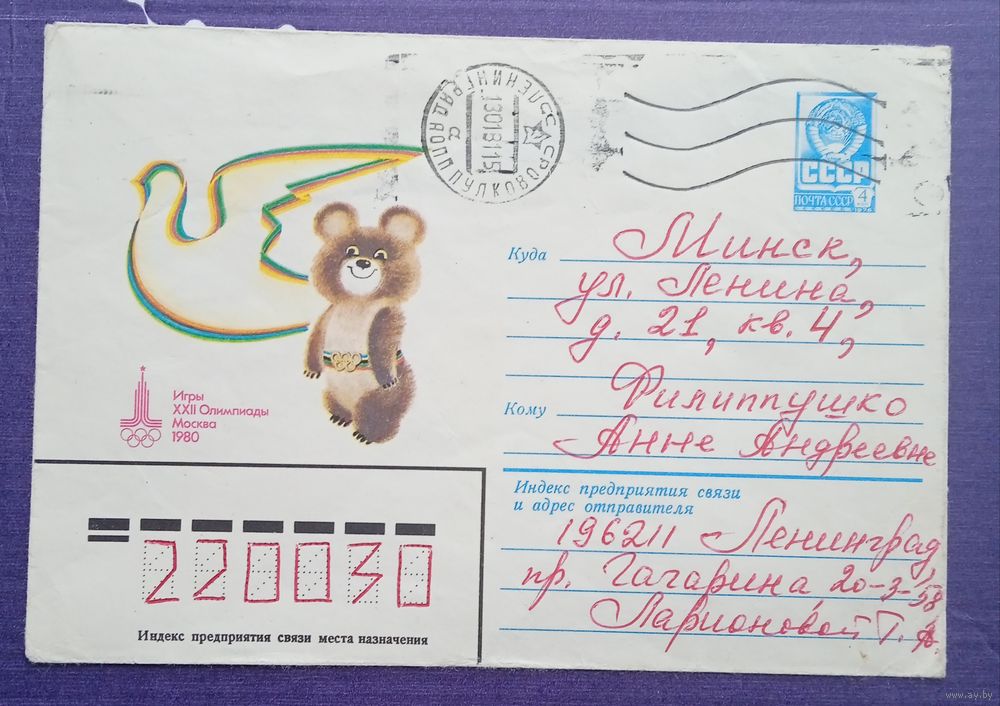 СССР ЛЕНИНГРАД АОПП ПУЛКОВО
130181 15
СССР
ПОЧТА СССР 4
Куда Минск,
ул. Ленина,
д. 21, кв. 4,
Кому Филиппушко
Анне Андреевне
Игры
XXII Олимпиады
Москва
1980
Индекс предприятия связи
и адрес отправителя
196211 Ленинград
пр. Гагарина 20-3-58
Ларионовой Т.
220030
Индекс предприятия связи места назначения
www.ay.by